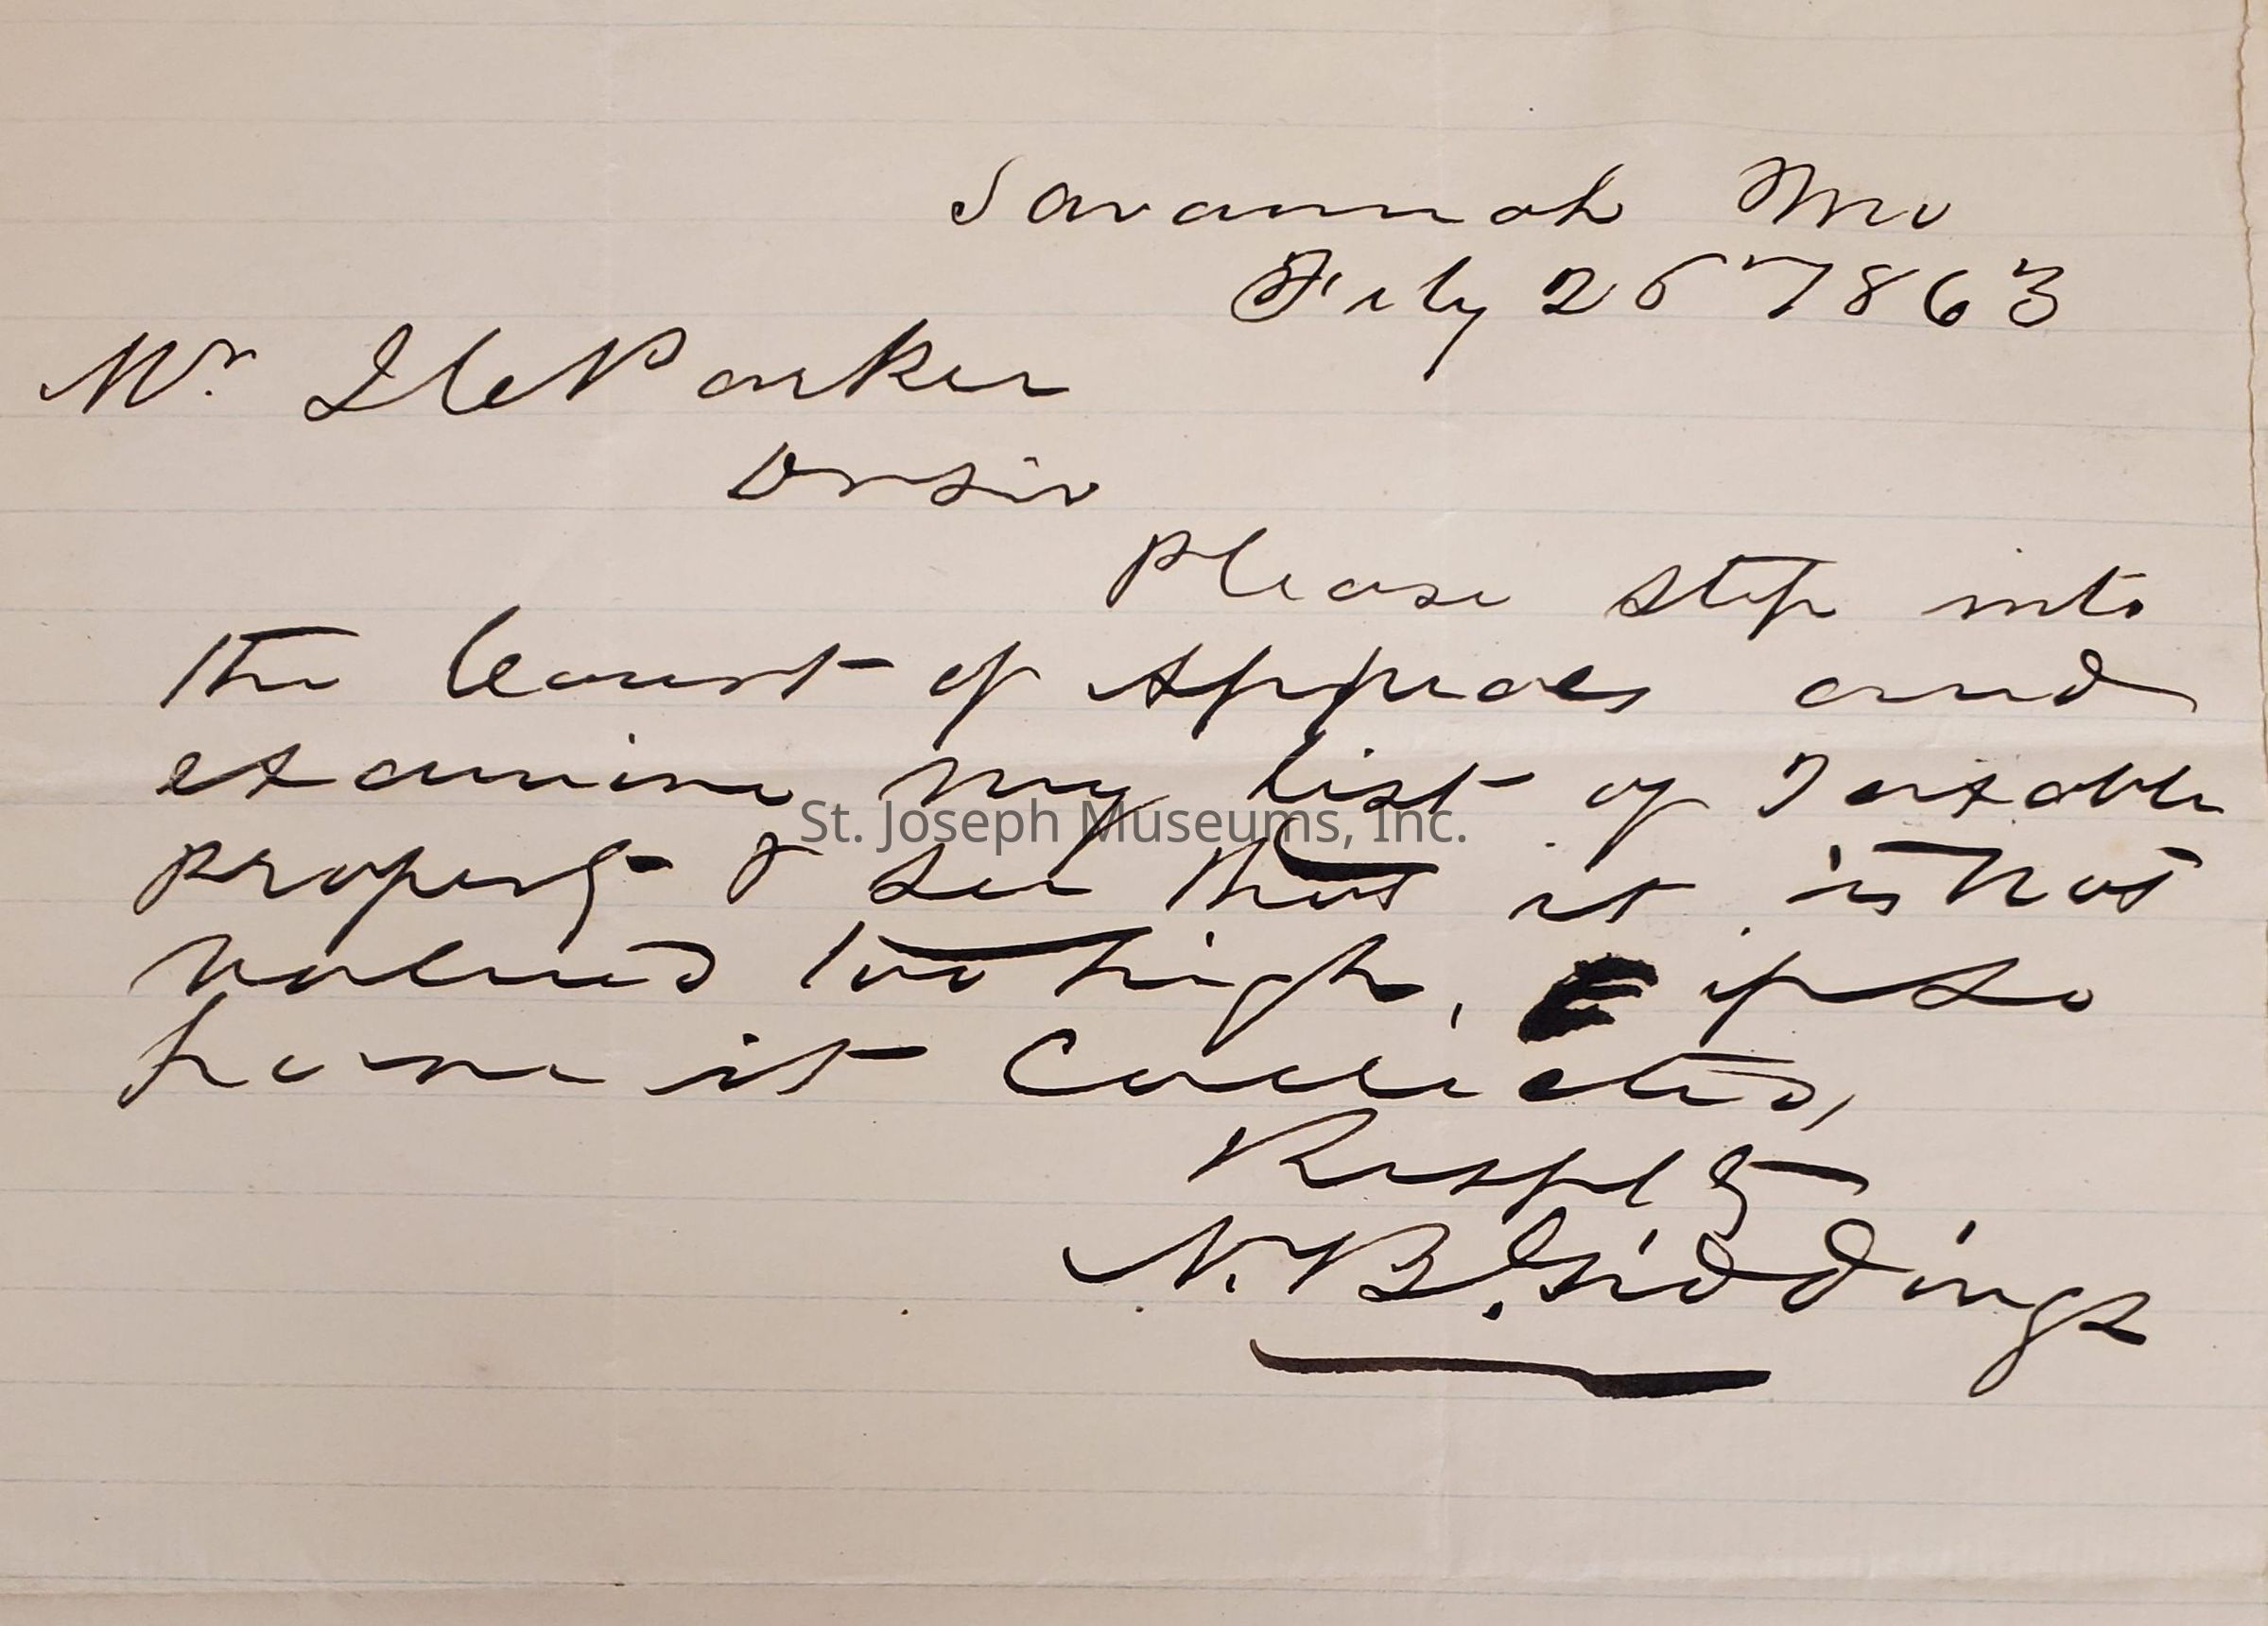 Savannah Mo
Feby 25 1863
Mr. I C Parker
Dr Sir
Please step into
the Court of Appeals and
examine my list of Taxable
property & see that it is not
valued too high, if so
have it Corrected,
Resply
N. B. Giddings
St. Joseph Museums, Inc.